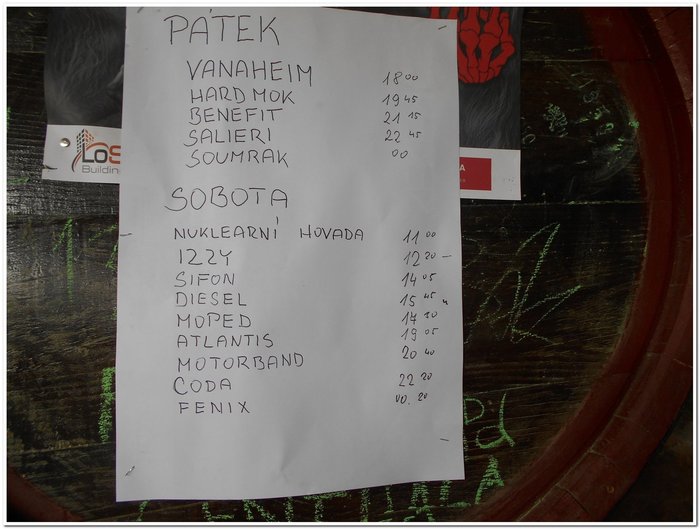 PÁTEK
VANAHEIM 18 00
HARD MOK 19 45
BENEFIT 21 15
SALIERI 22 45
SOUMRAK 00
LoS
Building
SOBOTA
NUKLEARNÍ HOVADA 11 00
IZZY 12 20 –
SIFON 14 05
DIESEL 15 45
MOPED 17 20
ATLANTIS 19 05
MOTORBAND 20 40
CODA 22 20
FENIX 00. 20